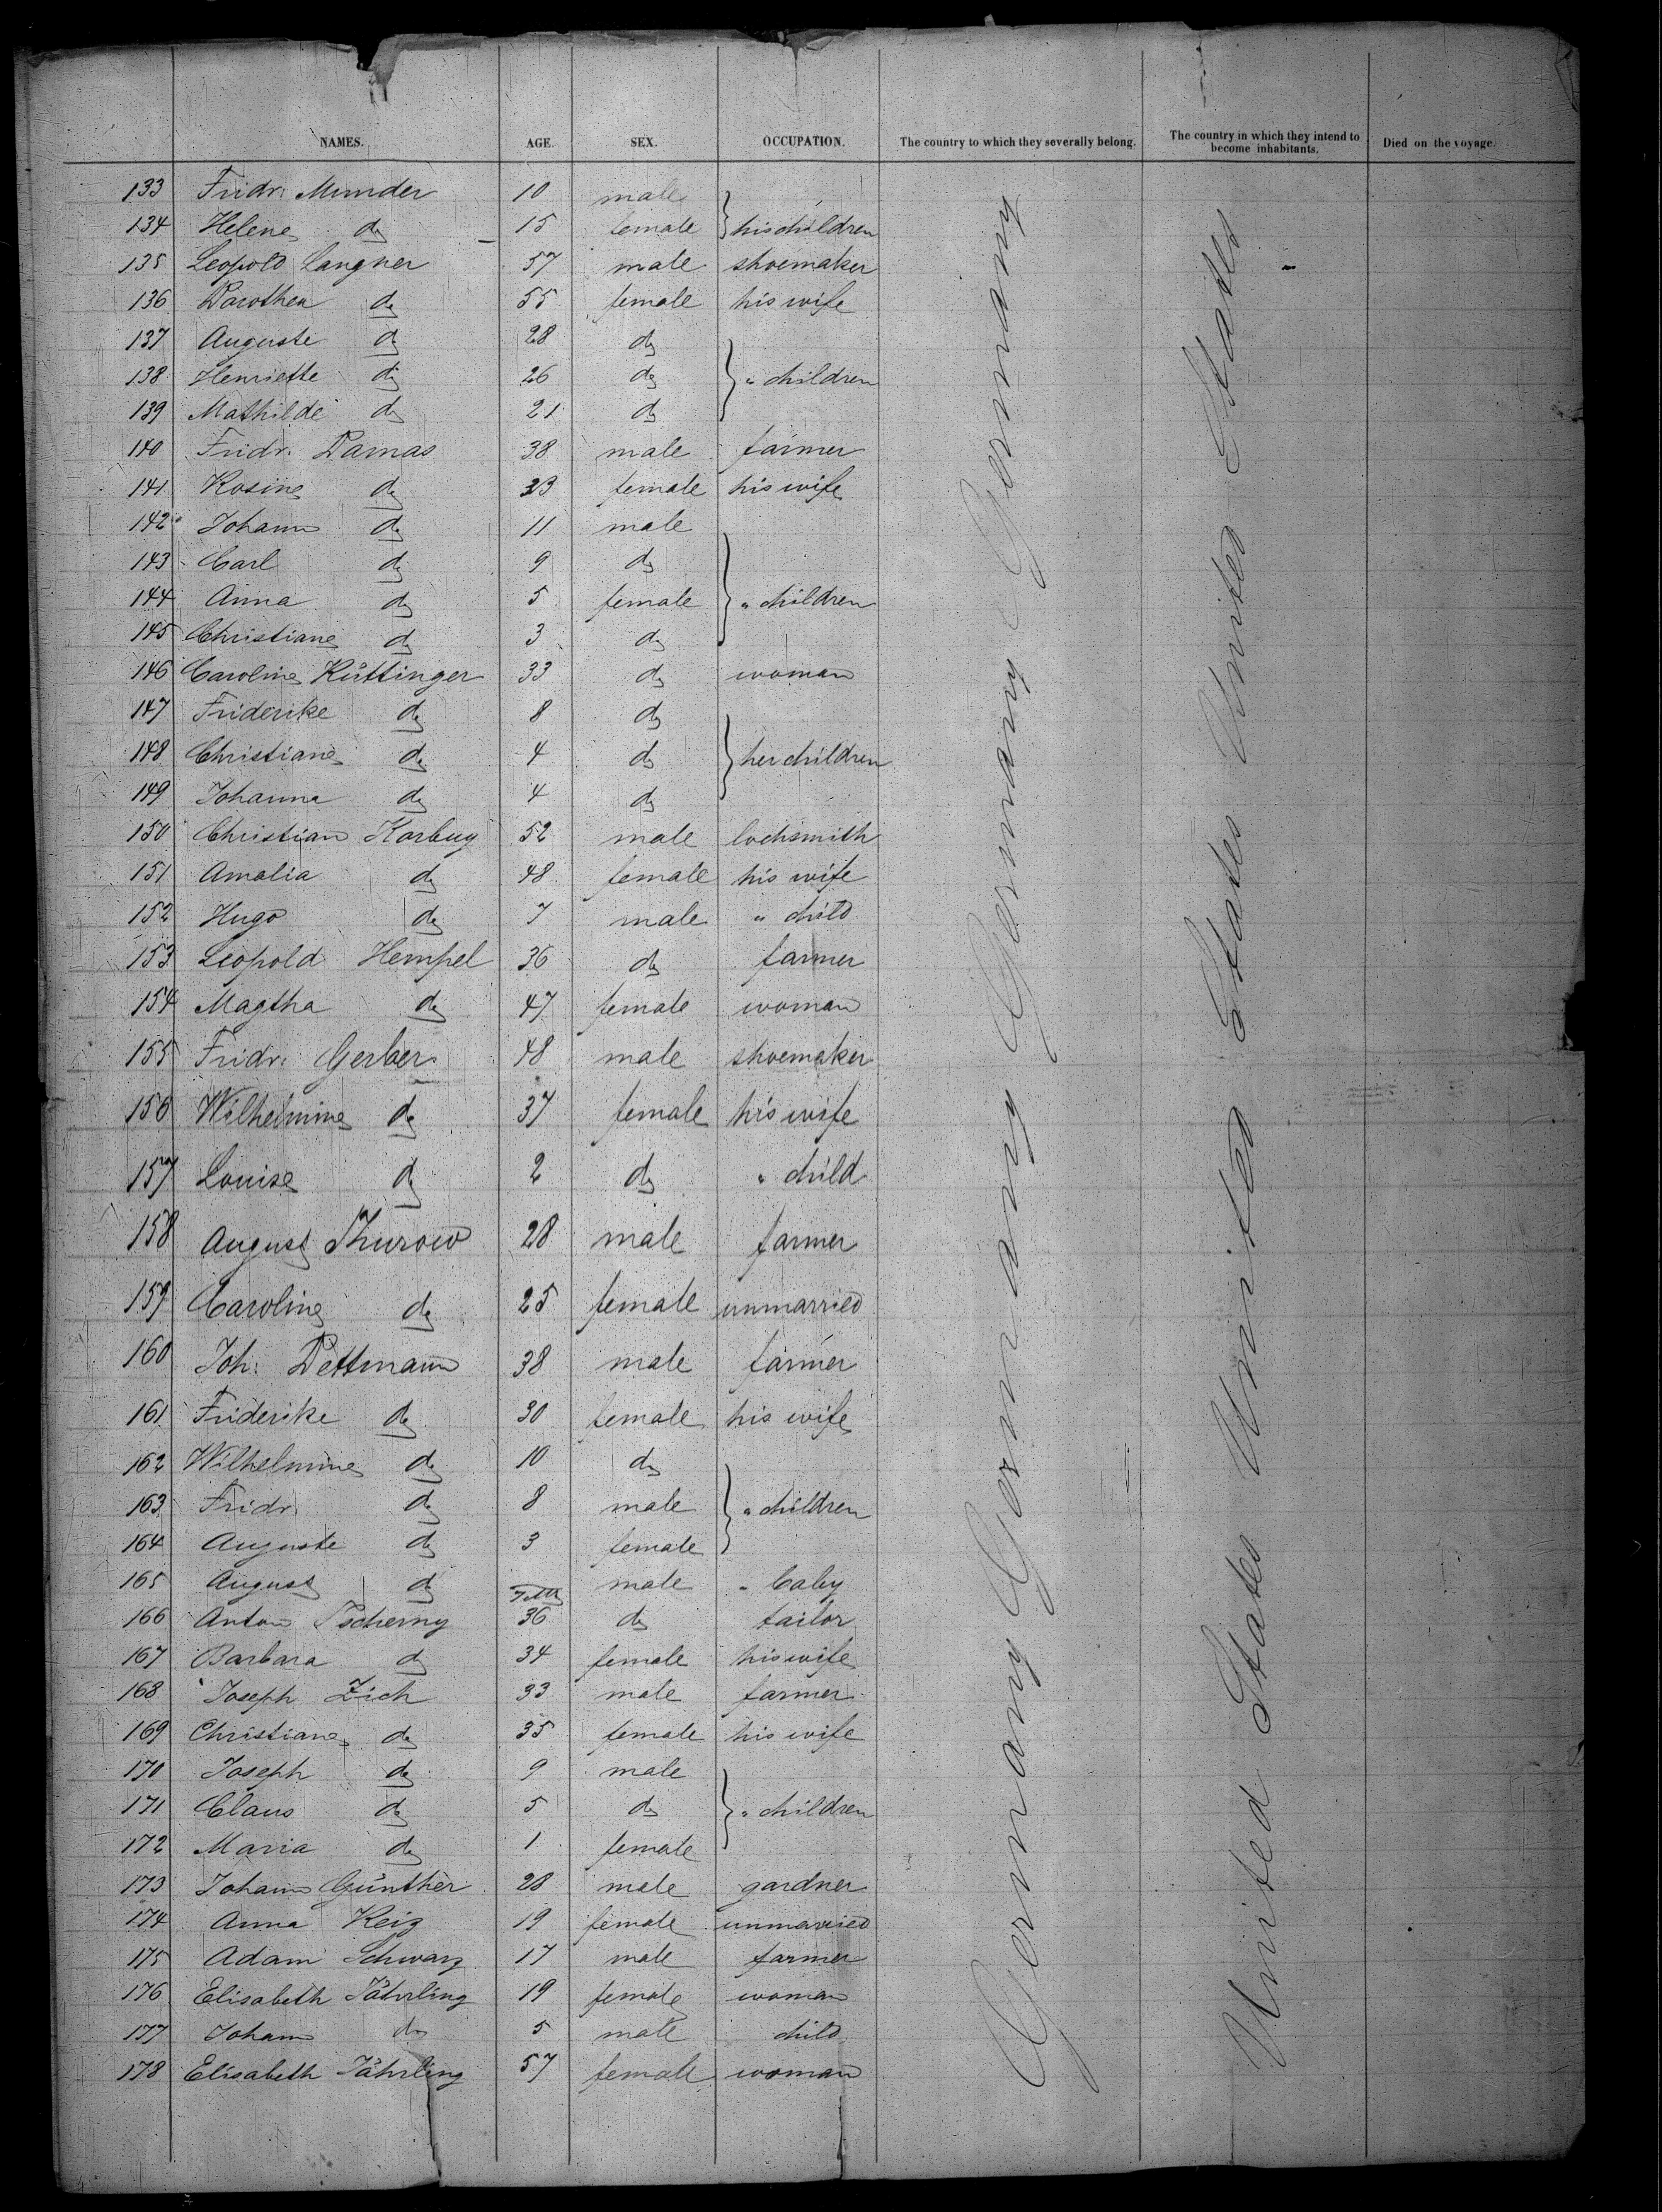 NAMES. AGE. SEX. OCCUPATION. The country to which they severally belong. The country in which they intend to become inhabitants. Died on the voyage.
133 Fridr. Munder 10 male
134 Helene do 15 female } his children
135 Leopold Langner 57 male shoemaker
136 Dorothea do 55 female his wife
137 Auguste do 28 do
138 Henriette do 26 do } " children
139 Mathilde do 21 do
140 Fridr. Damas 38 male farmer
141 Rosine do 33 female his wife
142 Johann do 11 male
143 Carl do 9 do
144 Anna do 5 female } " children
145 Christiane do 3 do
146 Caroline Küttinger 33 do woman
147 Friderike do 8 do
148 Christiane do 4 do } her children
149 Johanna do 4 do
150 Christian Korbuy 52 male lochsmith
151 Amalia do 48 female his wife
152 Hugo do 7 male " child
153 Leopold Hempel 36 do farmer
154 Magtha do 47 female woman
155 Fridr. Gerber 48 male shoemaker
156 Wilhelmine do 37 female his wife
157 Louise do 2 do " child
158 August Thurow 28 male farmer
159 Caroline do 25 female unmarried
160 Joh: Dettmann 38 male farmer
161 Friderike do 30 female his wife
162 Wilhelmine do 10 do
163 Fridr. do 8 male } " children
164 Auguste do 3 female
165 August do male " baby
166 Anton Pscherny 36 do tailor
167 Barbara do 34 female his wife
168 Joseph Zich 33 male farmer
169 Christiane do 35 female his wife
170 Joseph do 9 male
171 Claus do 5 do } " children
172 Maria do 1 female
173 Johann Günther 28 male gardner
174 Anna Reiz 19 female unmarried
175 Adam Schwarz 17 male farmer
176 Elisabeth Jährling 19 female woman
177 Johann do 5 male child
178 Elisabeth Jährling 57 female woman
Germany Germany Germany Germany
United States United States United States